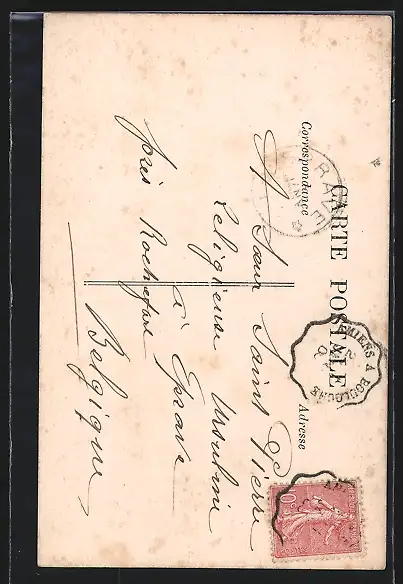 CARTE POSTALE
Correspondance
Adresse
A Sœur Saint Pierre
religieuse Ursuline
à Eprave
près Rochefort
Belgique
AMIENS A BOULOGNE
10